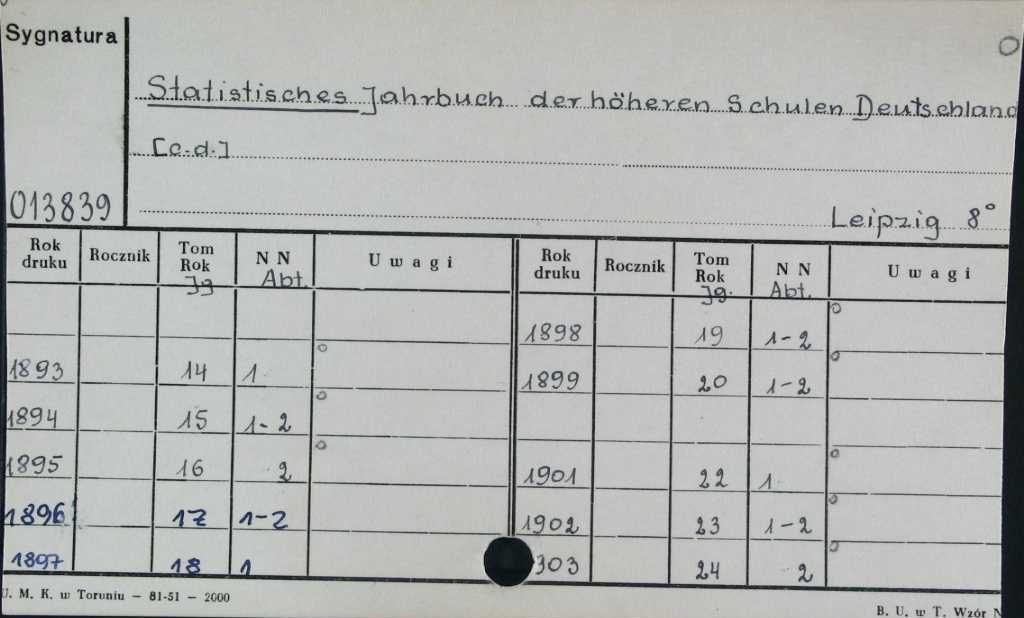 Sygnatura
Statistisches Jahrbuch der höheren Schulen Deutschland
[c.d.]
013839
Leipzig 8°
Rok druku Rocznik Tom Rok Jg NN Abt. Uwagi Rok druku Rocznik Tom Rok Jg. NN Abt. Uwagi
1898 19 1-2
1893 14 1 1899 20 1-2
1894 15 1-2
1895 16 2 1901 22 1
1896 17 1-2 1902 23 1-2
1897 18 1 303 24 2
U. M. K. w Toruniu – 81-51 – 2000
B. U. w T. Wzór N